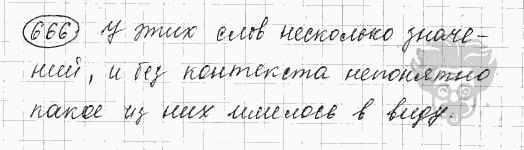 666 У этих слов несколько значе-
ний, и без контекста непонятно
какое из них имелось в виду.